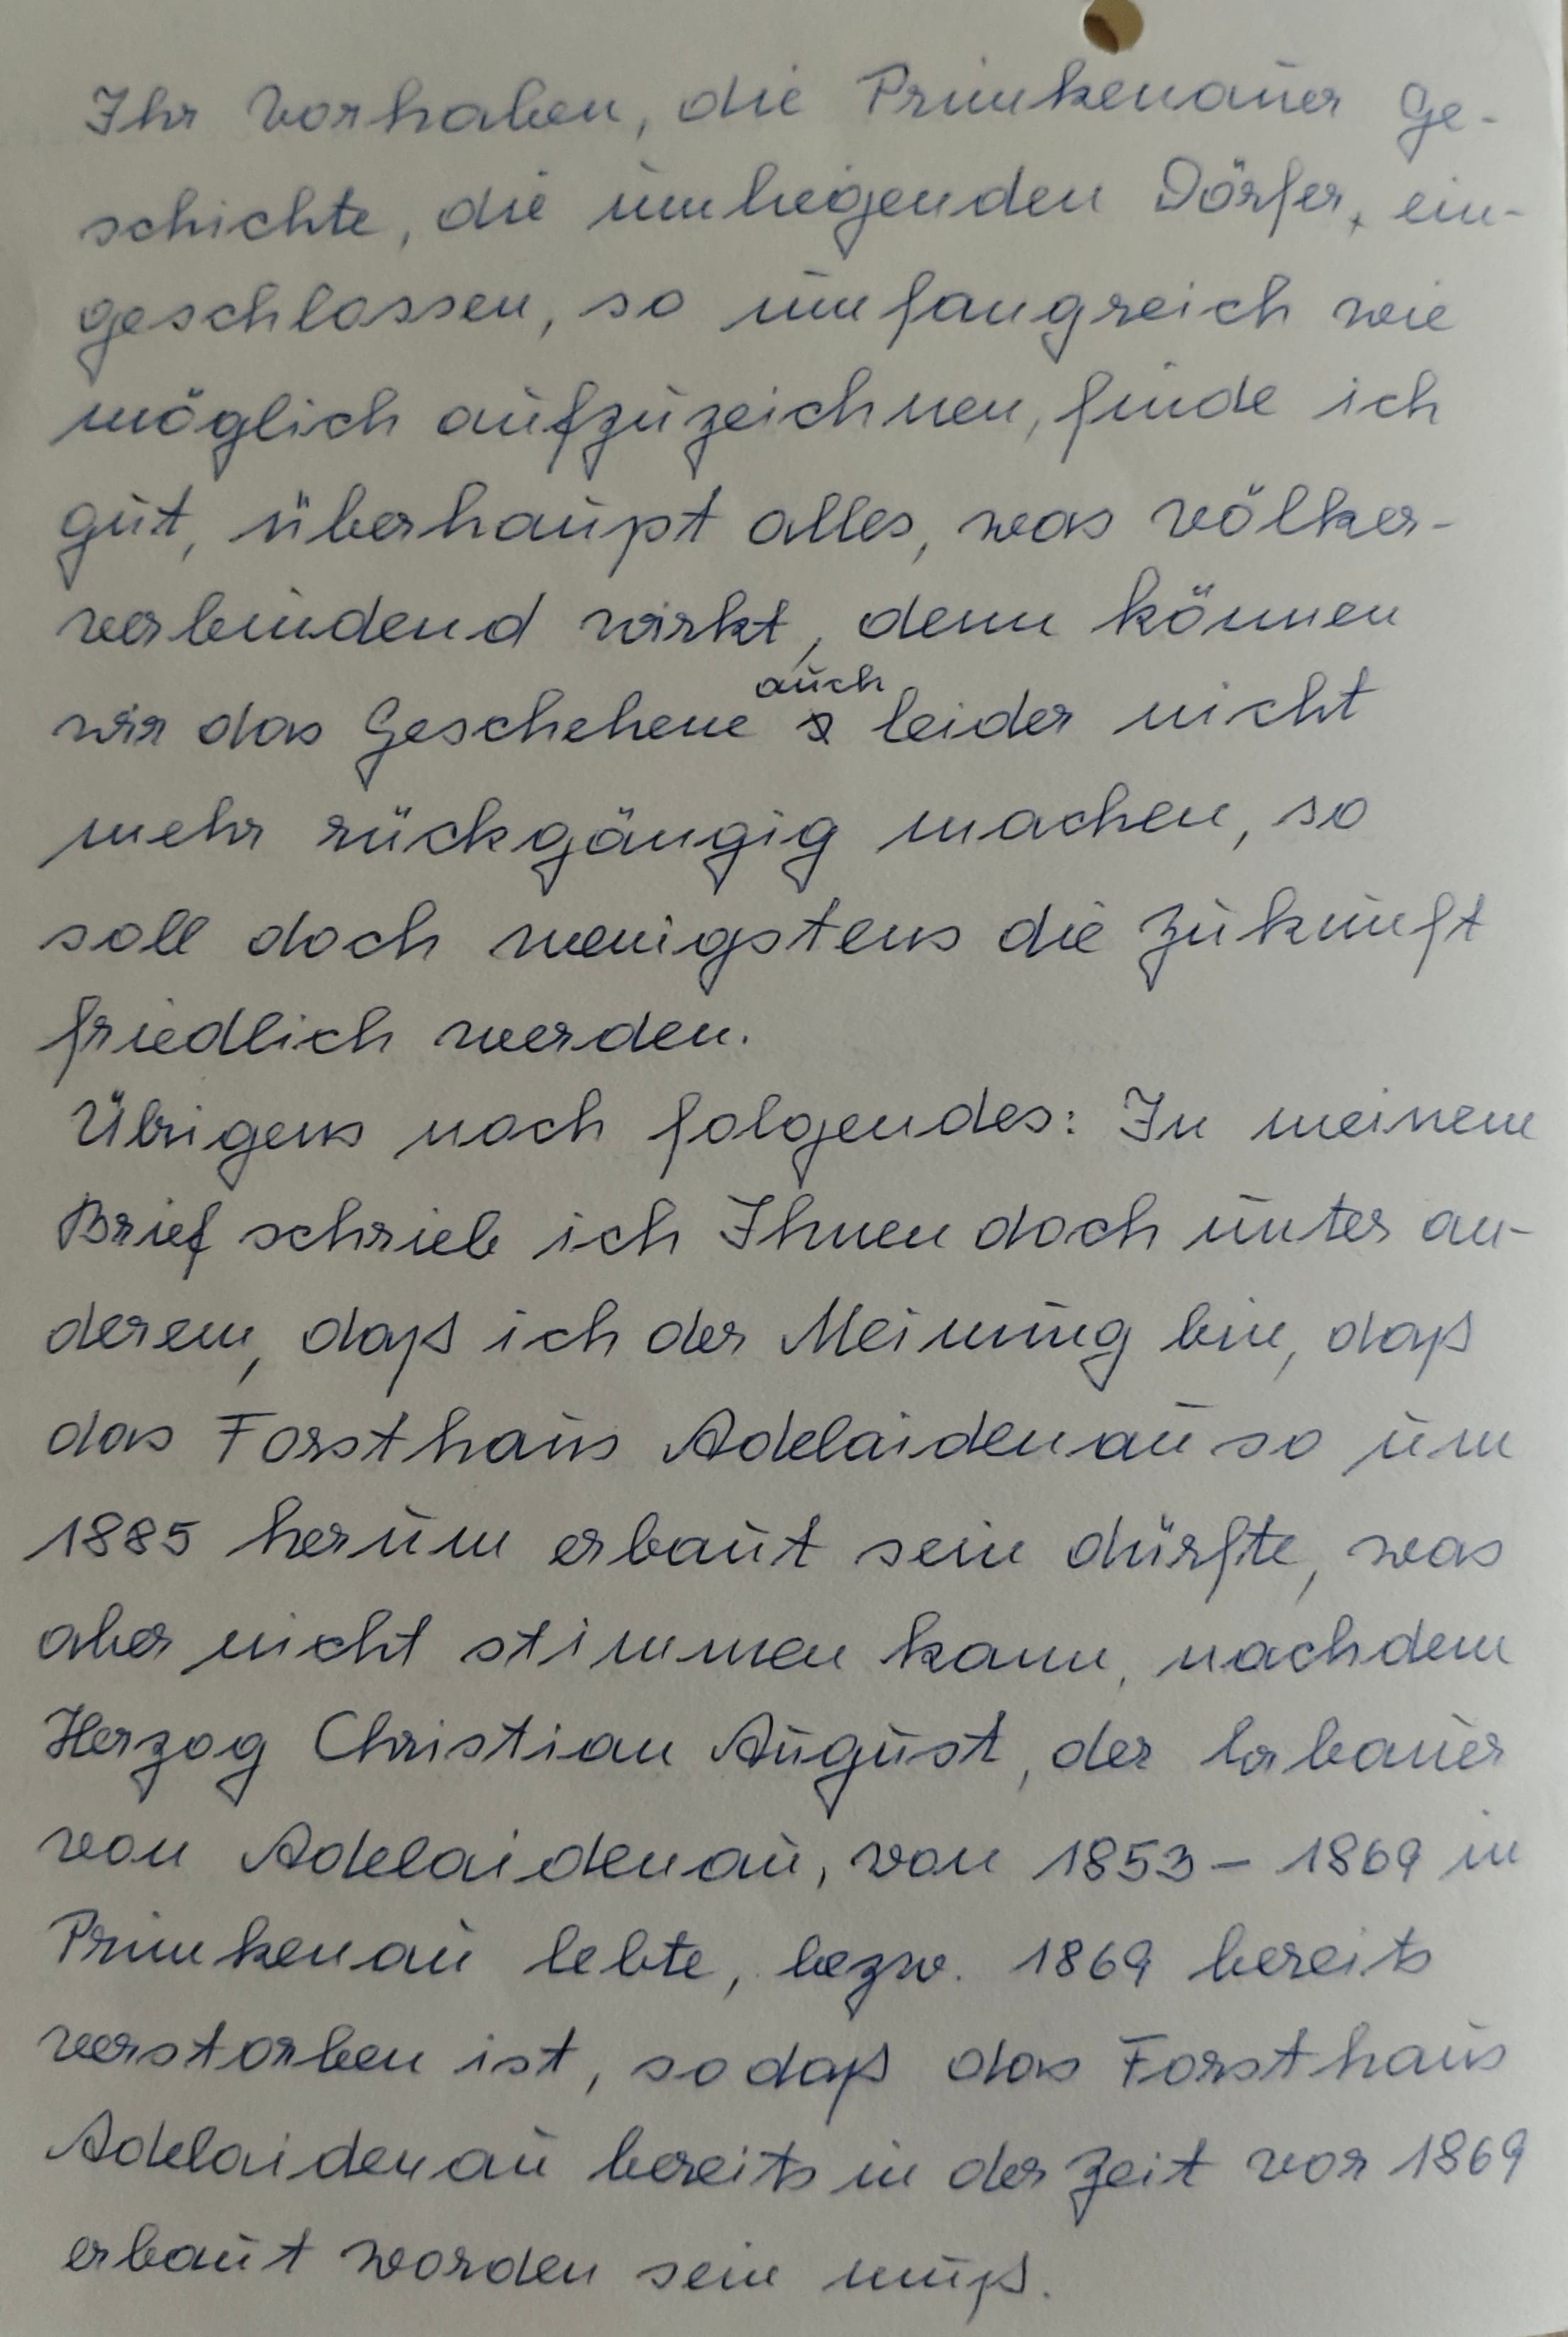 Ihr Vorhaben, die Primkenauer Ge-
schichte, die umliegenden Dörfer, ein-
geschlossen, so umfangreich wie
möglich aufzuzeichnen, finde ich
gut, überhaupt alles, was völker-
verbindend wirkt, denn können
auch
wir das Geschehene leider nicht
mehr rückgängig machen, so
soll doch wenigstens die Zukunft
friedlich werden.
Übrigens noch folgendes: In meinem
Brief schrieb ich Ihnen doch unter an-
derem, daß ich der Meinung bin, daß
das Forsthaus Adelaidenau so um
1885 herum erbaut sein dürfte, was
aber nicht stimmen kann, nachdem
Herzog Christian August, der Erbauer
von Adelaidenau, von 1853 - 1869 in
Primkenau lebte, bezw. 1869 bereits
verstorben ist, sodaß das Forsthaus
Adelaidenau bereits in der Zeit vor 1869
erbaut worden sein muß.